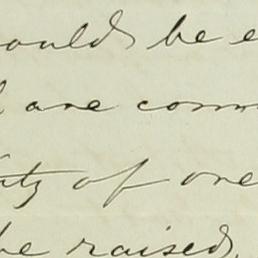 ould be e
are comm
ty of one
be raised,